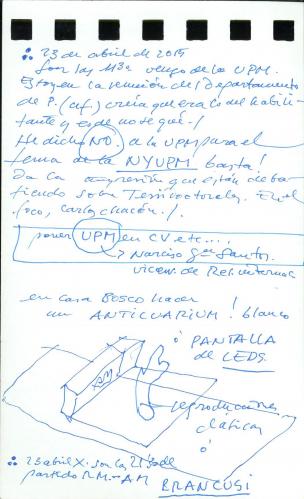 ∴ 23 de abril de 2015
Son las 113a vengo de la UPM.
Estoy en la reunión del Departamento
de P. (af.) creía que era lo del habili-
tante y es de no sé qué!
He dicho NO. a la UPM para el
tema de la NYUPM basta!
Da la impresión que están deba-
tiendo sobre Tesis doctorales. En el
foro, Carlos Chacón.
poner UPM en CV etc....
→ Narciso Gª Santos.
vicerr. de Rel. internac
en casa BOSCO hacer
un ANTICUARIUM! blanco
ó PANTALLA
de LEDS.
AM
reproducciones
clásicas
ó
∴ 23 abril X. son las 21 30 de
partido RM-AM
BRANCUSI